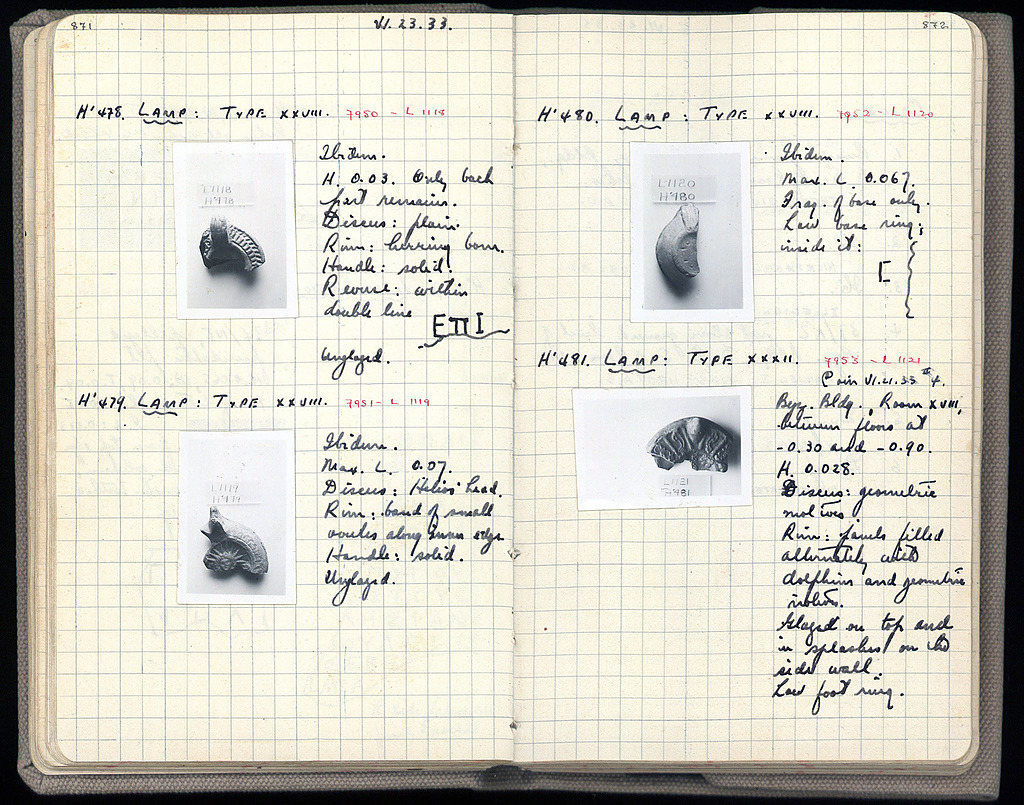 871
VI.23.33.
H'478. LAMP: TYPE XXVIII. 7950 - L 1118
L1118
H'478
Ibidem.
H. 0.03. Only back
part remains.
Discus: plain.
Rim: herring bone.
Handle: solid.
Reverse: within
double line
ΕΠΙ
Unglazed.
H'479. LAMP: TYPE XXVIII. 7951 - L 1119
L1119
H'479
Ibidem.
Max. L. 0.07.
Discus: Helios' head.
Rim: band of small
ovules along inner edge
Handle: solid.
Unglazed.
872
H'480. LAMP: TYPE XXVIII. 7952 - L 1120
L1120
H'480
Ibidem.
Max. L. 0.067.
Frag. of base only.
Low base ring;
inside it:
E
H'481. LAMP: TYPE XXXII. 7953 - L 1121
Coin VI.21.33 #4.
Byz. Bldg., Room XVIII,
between floors at
-0.30 and -0.90.
H. 0.028.
L1121
H'481
Discus: geometric
motives.
Rim: panels filled
alternately with
dolphins and geometric
motives.
Glazed on top and
in splashes on the
side wall.
Low foot ring.